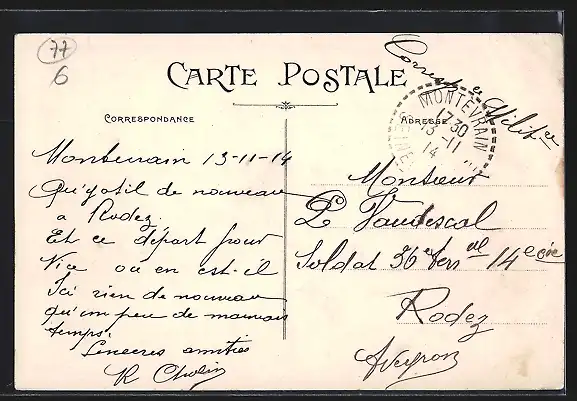 77
6
Corresp ce Milit re
CARTE POSTALE
CORRESPONDANCE
ADRESSE
MONTEVRAIN
17 30
13 - 11
14
SEINE
Montevrain 13-11-14
Qu'y atil de nouveau
a Rodez
Et ce départ pour
Nice ou en est-il
Ici rien de nouveau
qu'un peu de mauvais
temps.
Sinceres amitiés
R
Monsieur
P Vaudescal
Soldat 36e Terr al 14e cie
Rodez
Aveyron